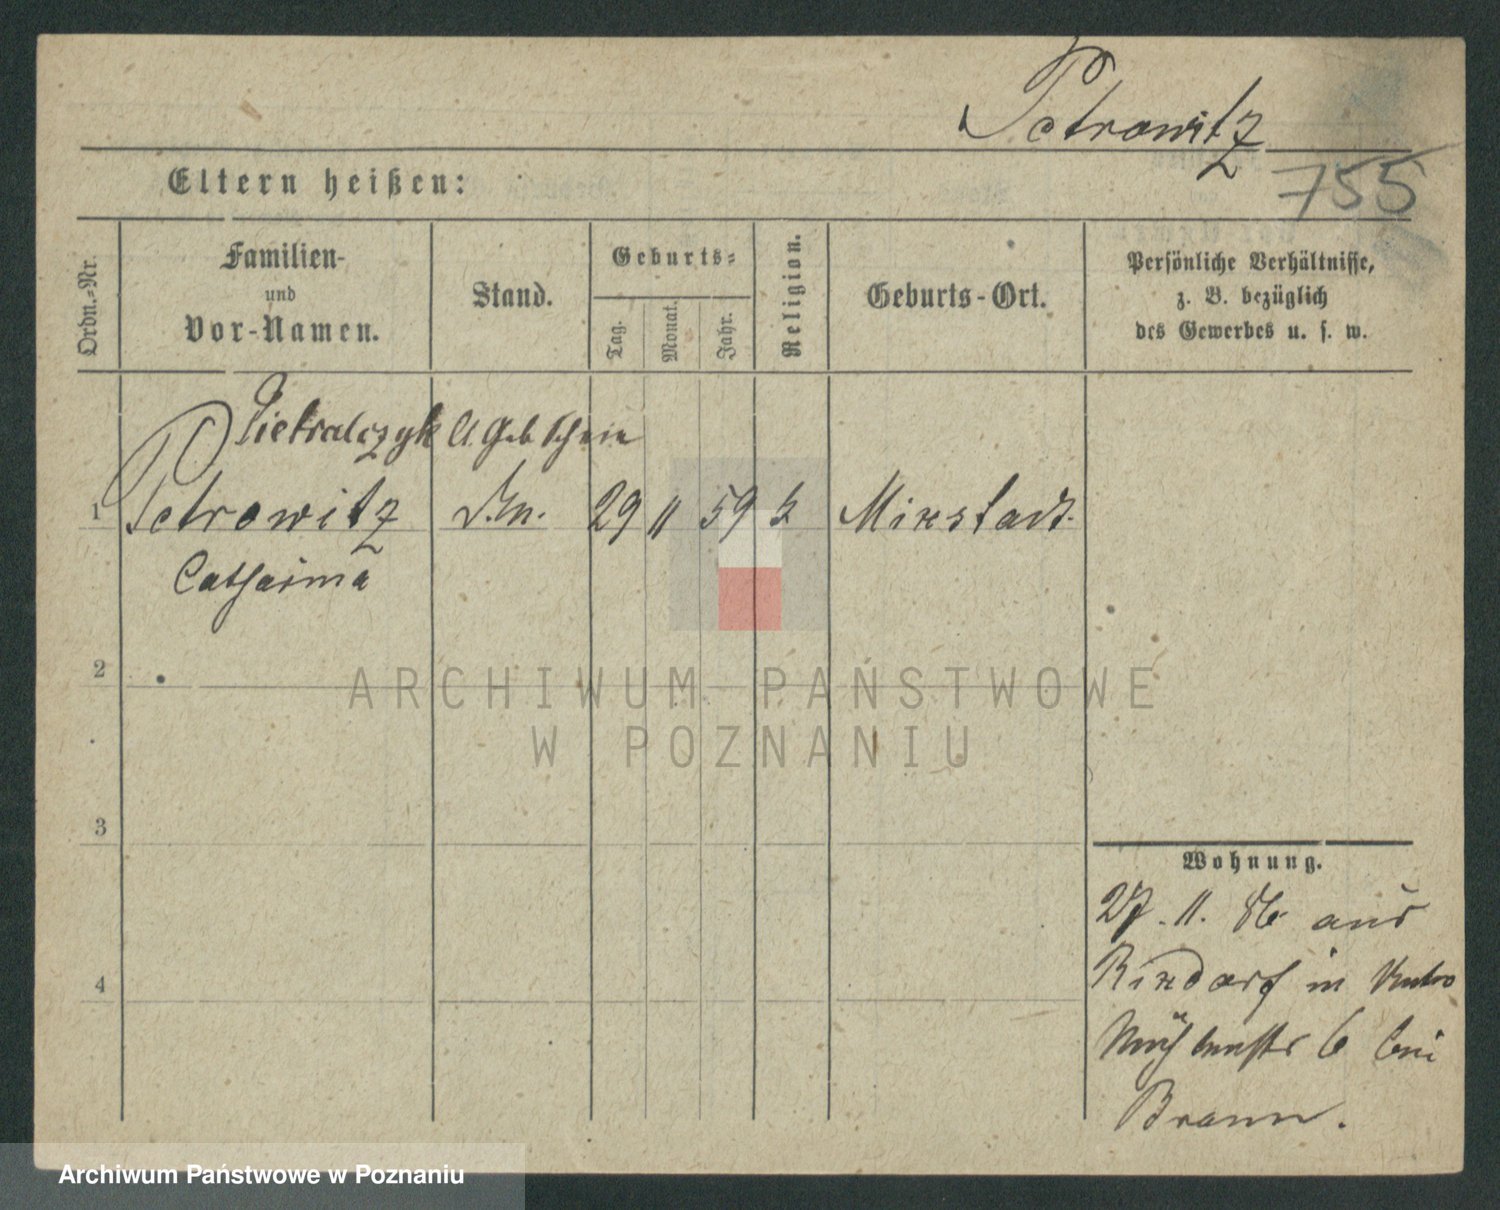 Petrowitz
755
Eltern heißen:
Ordn.-Nr.
Familien-
und
Vor-Namen.
Stand.
Geburts-
Tag.
Monat.
Jahr.
Religion.
Geburts-Ort.
Persönliche Verhältnisse,
z. B. bezüglich
des Gewerbes u. s. w.
Pietralczyk lt. Geb Schein
1 Petrowitz 29 11 59 k Mixstadt.
Catharina
2
3
4
Wohnung.
27. 11. 86 aus
Rixdorf in
Mühlenstr 6 bei
Braun.
ARCHIWUM PAŃSTWOWE
W POZNANIU
Archiwum Państwowe w Poznaniu